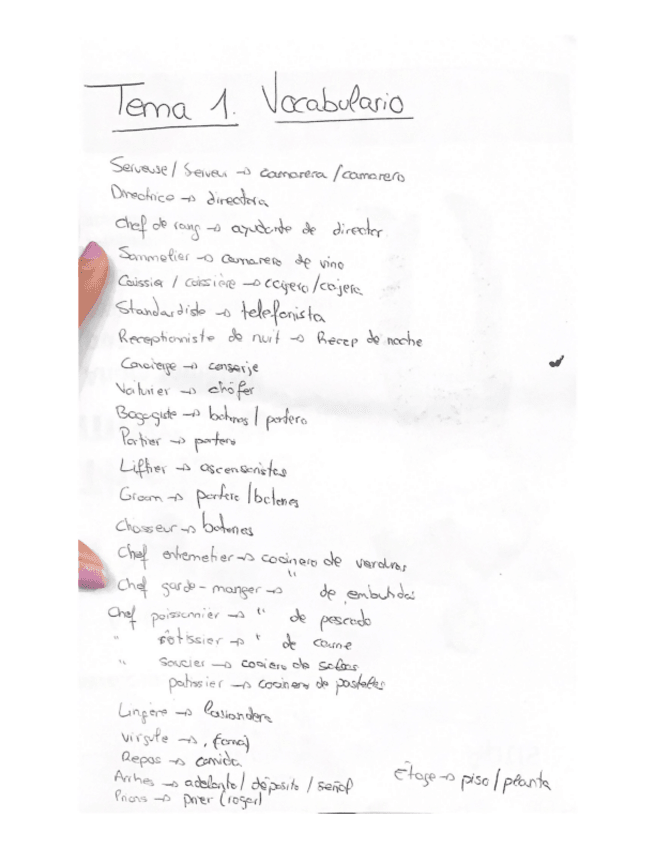 Tema 1. Vocabulario
Serveuse / Serveur → camarera / camarero
Directrice → directora
Chef de rang → ayudante de director
Sommelier → camarero de vino
Caissier / caissière → cajero / cajera
Standardiste → telefonista
Receptionniste de nuit → Recep de noche
Concierge → conserje
Voiturier → chófer
Bagagiste → botones / portero
Portier → portero
Liftier → ascensoristas
Groom → portero / botones
Chasseur → botones
Chef entremetier → cocinero de verduras
Chef garde-manger → " de embutidos
Chef poissonnier → " de pescado
" rôtissier → " de carne
" saucier → cociero de salsas
patissier → cocinero de pasteles
Lingère → lavandera
Virgule → , (coma)
Repas → comida
Arrhes → adelanto / déposito / señal
Étage → piso / planta
Prions → prier (rogar)